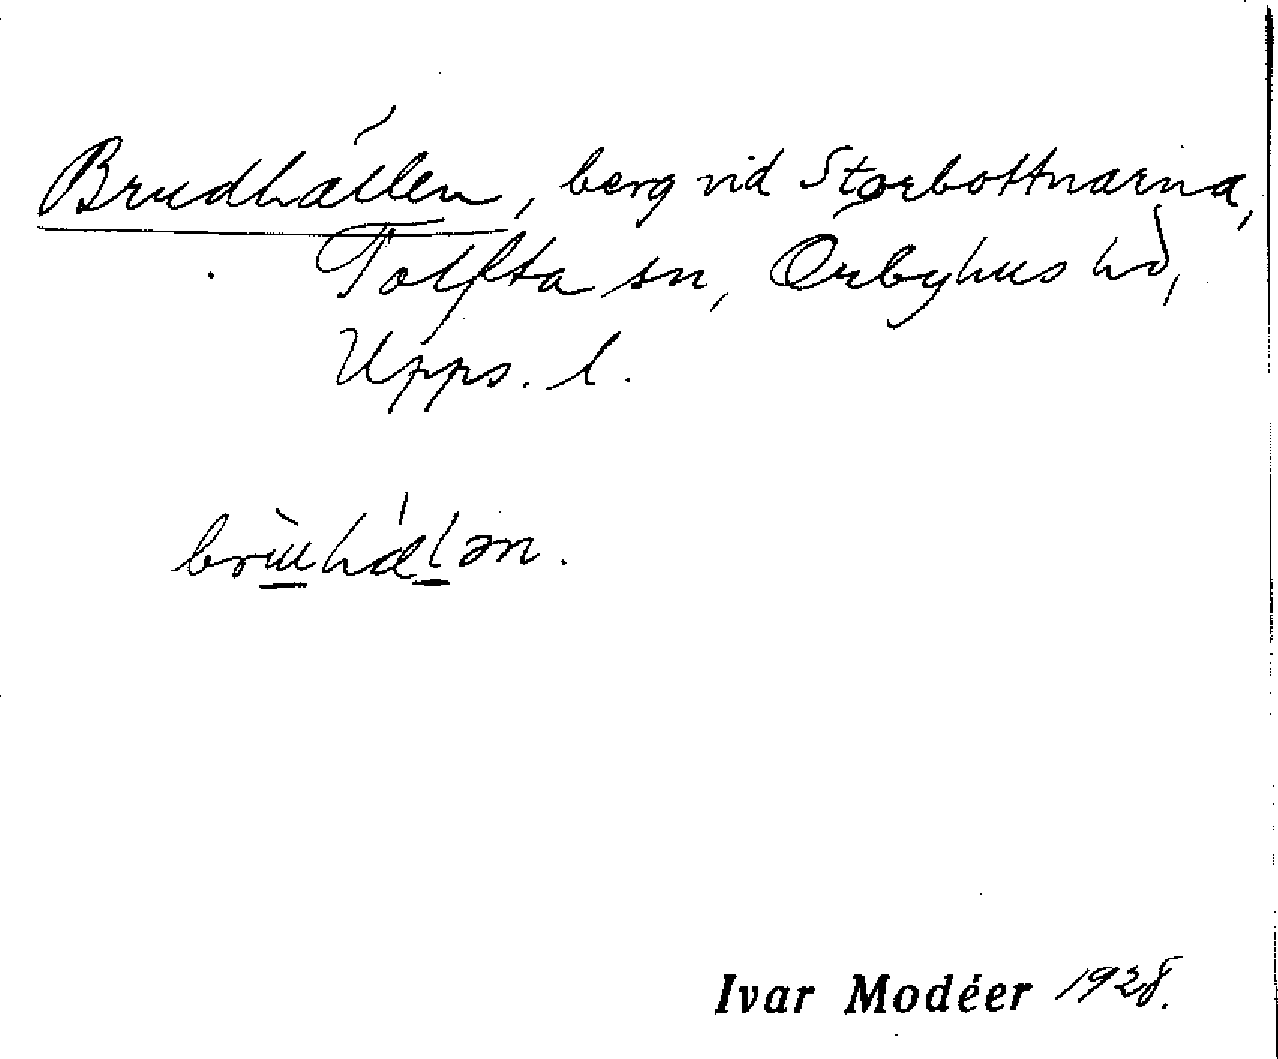 Brudhällen, berg vid Storbottnarna,
Tolfta sn, Örbyhus hd,
Upps. l.
brùhǽlən.
Ivar Modéer 1928.